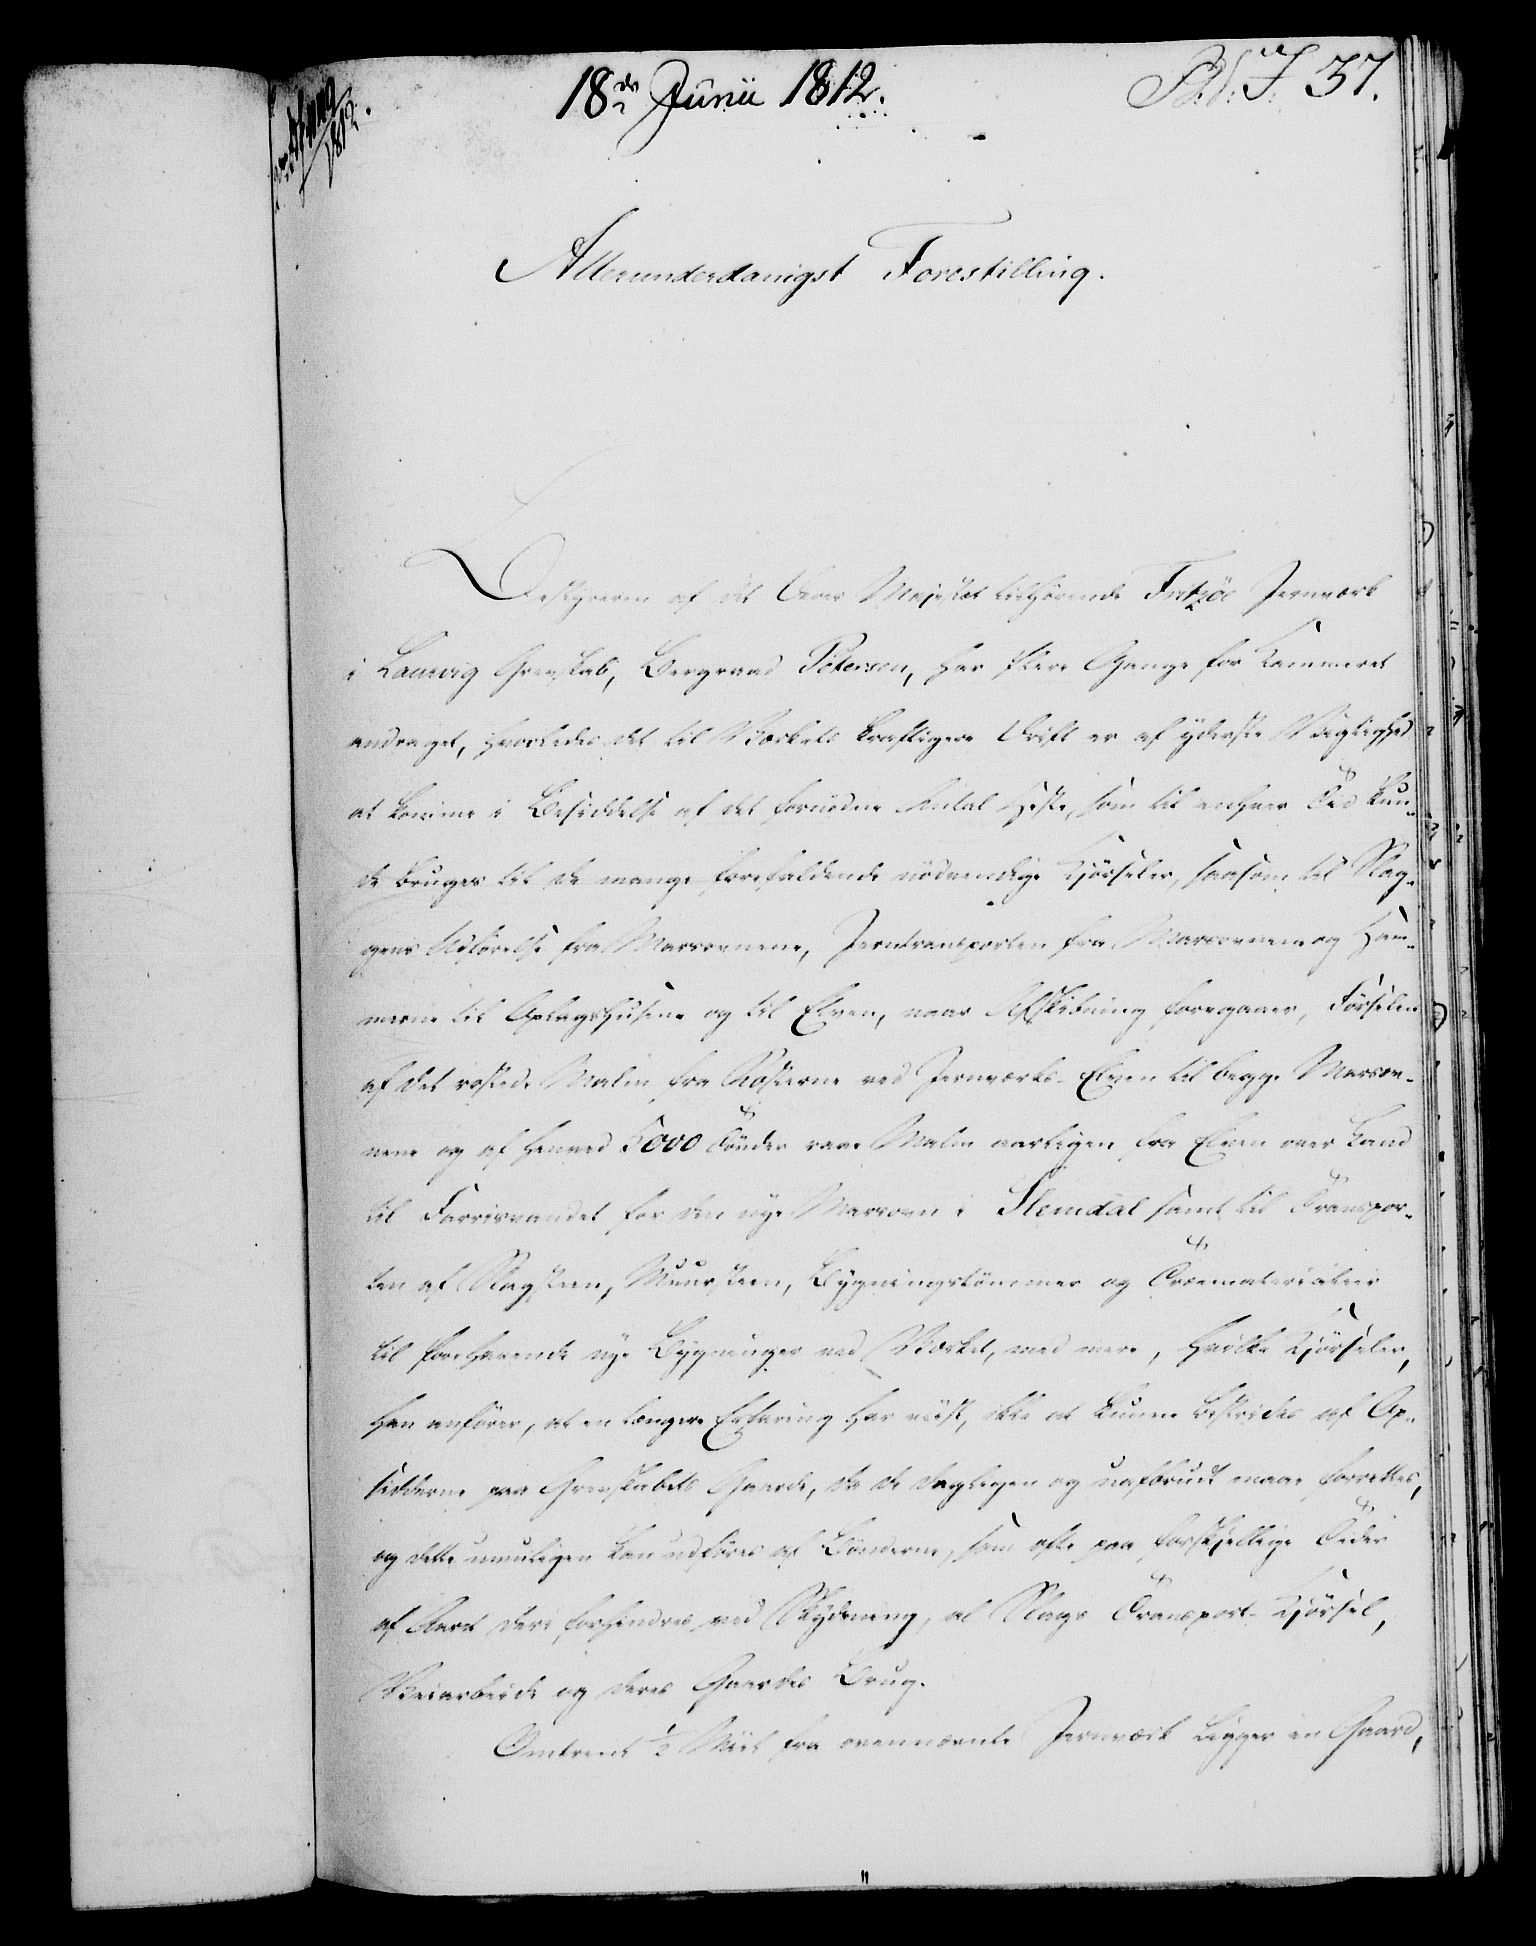 18de Junii 1812.
37.
1812.
Allerunderdanigst Forestilling.
Bestyreren af det Deres Majestæt tilhörende Fritzöe Jernværk
i Laurvig Grevskab, Bergraad Petersen, har flere Gange for Kammeret
andraget, hvorledes det til Værkets kraftigere Drift er af yderste Vigtighed
at komme i Besiddelse af det fornödne Antal Heste, som til enhver Tid kun¬
de bruges til de mange forefaldende nödvendige Kjörseler, saasom til Slag¬
gens Udförelse fra Masovnene, Jerntransporten fra Masovnene og Ham¬
merne til Oplagshusene og til Elven, naar Afskibning foregaaer, Förselen
af det röstede Malm fra Rösterne ved Jernværks-Elven til begge Masov¬
nene og af henved 5000 Tönder raae Malm aarligen fra Elven over Land
til Farrisvandet for den nye Masovn i Slemdal samt til Transpor¬
ten af Slagsteen, Muursteen, Bygningstömmer og Træematerialier
til forehavende nye Bygninger ved Værket, med mere, hvilke Kjörseler,
han anförer, at en længere Erfaring har viist, ikke at kunne bestrides af Op¬
sidderne paa Grevskabets Gaarde, da de dagligen og uafbrudt maae forrettes,
og dette umuligen kan udföres af Bönderne, som ofte paa forskjellige Tider
af Aaret deri forhindres ved Skydsning, al Slags Transport-Kjörsel,
Veiarbeide og deres Gaardes Brug.
Omtrent ½ Miil fra ovennævnte Jernværk ligger en Gaard,